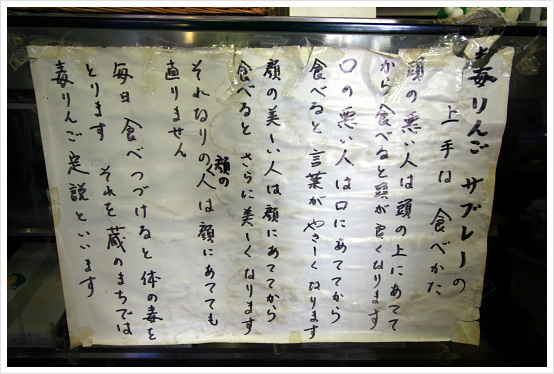 毒りんご サブレーの
上手は 食べかた
頭の悪い人は頭の上にあてて
から食べると頭が良くなります
口の悪い人は口にあててから
食べると言葉がやさーくなります
顔の美ーい人は顔にあててから
食べると さらに美ーくなります
それなりの顔の人は顔にあてても
直りません
毎日食べつづけると体の毒を
とります それを蔵のまちでは
毒りんご定説といいます